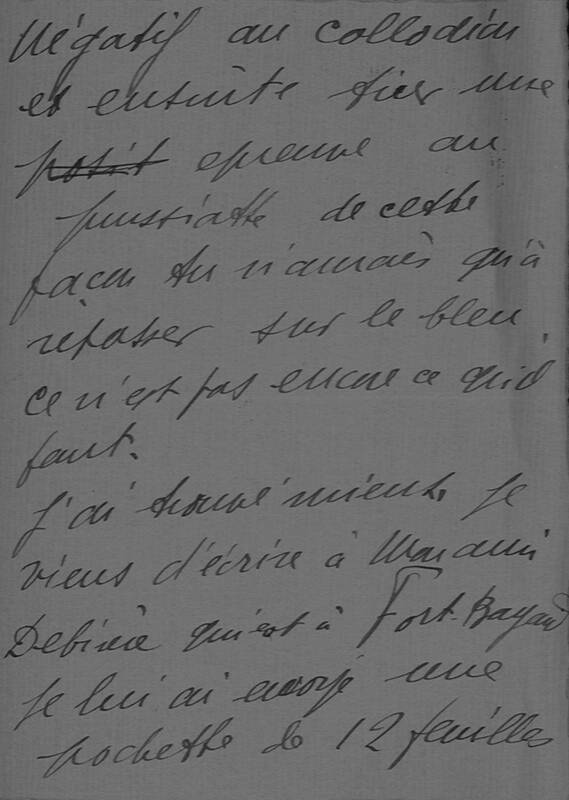 Négatif au collodion
et ensuite tirer une
posit epreuve au
prussiatte de cette
façon tu n'aurais qu'à
repasser sur le bleu
ce n'est pas encore ce qu'il
faut.
J'ai trouvé mieux, je
viens d'écrire à
qui est à Fort-Bayard
je lui ai envoyé une
pochette de 12 feuilles